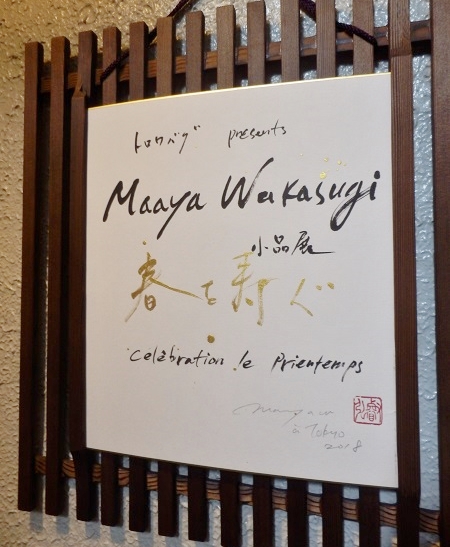 トロワバグ presents
Maaya Wakasugi
小品展
春を寿ぐ
Celèbration le Prientemps
à Tokyo
2018